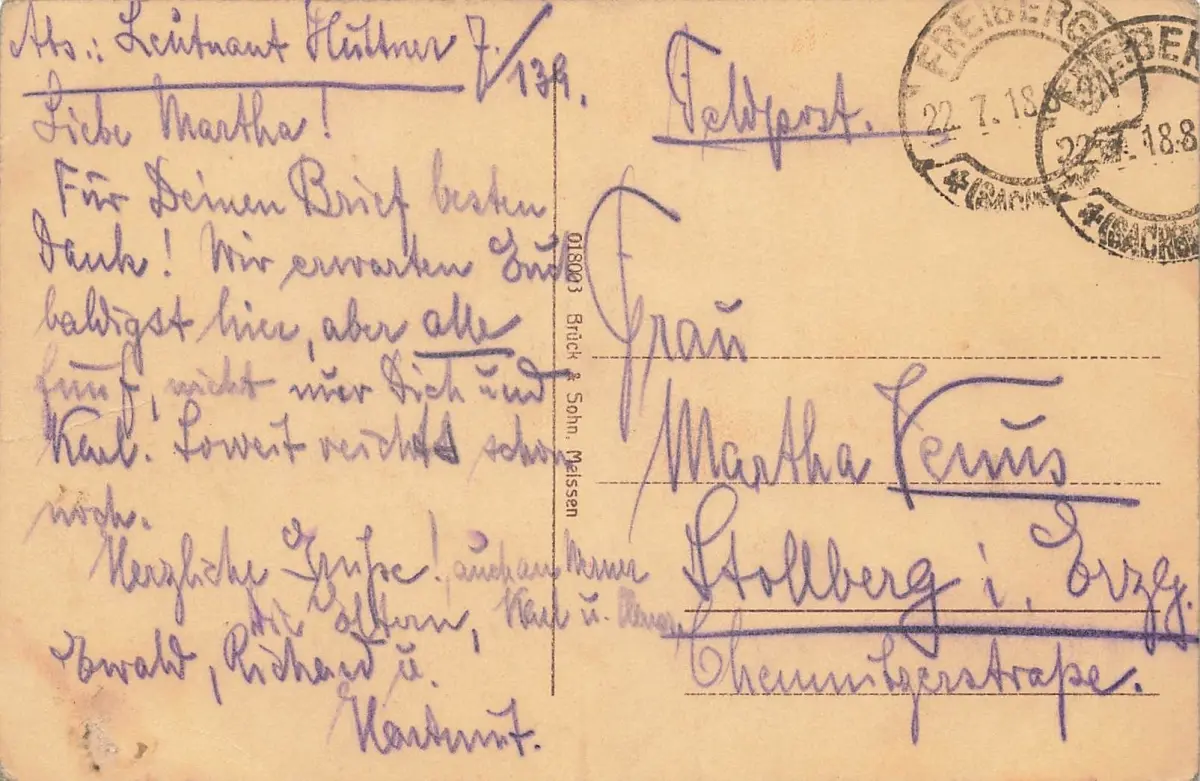 Abs.: Leutnant Huttner 7/139.
Liebe Martha!
Für Deinen Brief besten
Dank! Wir erwarten Euch
baldigst hier, aber alle
fünf, nicht nur Dich und
Karl. Soweit reichts schon
noch.
Herzliche Grüße! auch an Werner
die Eltern, Karl u.
Ewald, Richard u.
Hartmut.
018003 Brück & Sohn, Meissen
Feldpost.
FREIBERG
22.7.18.8
(SACHSEN)
FREIBERG
22.7.18.8
(SACHSEN)
Frau
Martha Venus
Stollberg i. Erzg.
Chemnitzerstraße.